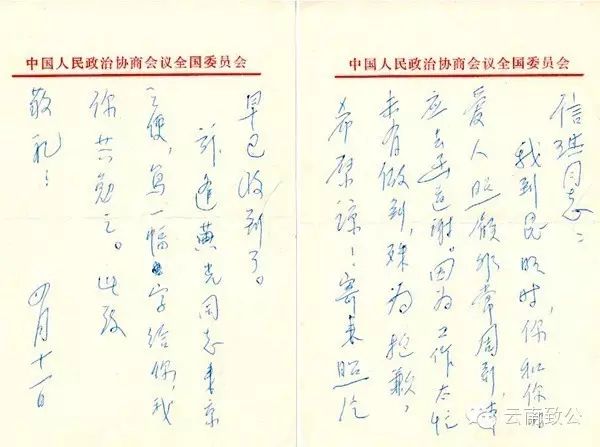 中国人民政治协商会议全国委员会
信琪同志：
我到昆明时，你和你的
爱人照顾非常周到，本
应去函道谢。因为工作太忙
未有做到，殊为抱歉，
希原谅！寄来照片
中国人民政治协商会议全国委员会
早已收到了。
逢黄克同志来京
之便，写一幅字给你，我
你共勉之。此致
敬礼！
四月十一日
云南致公